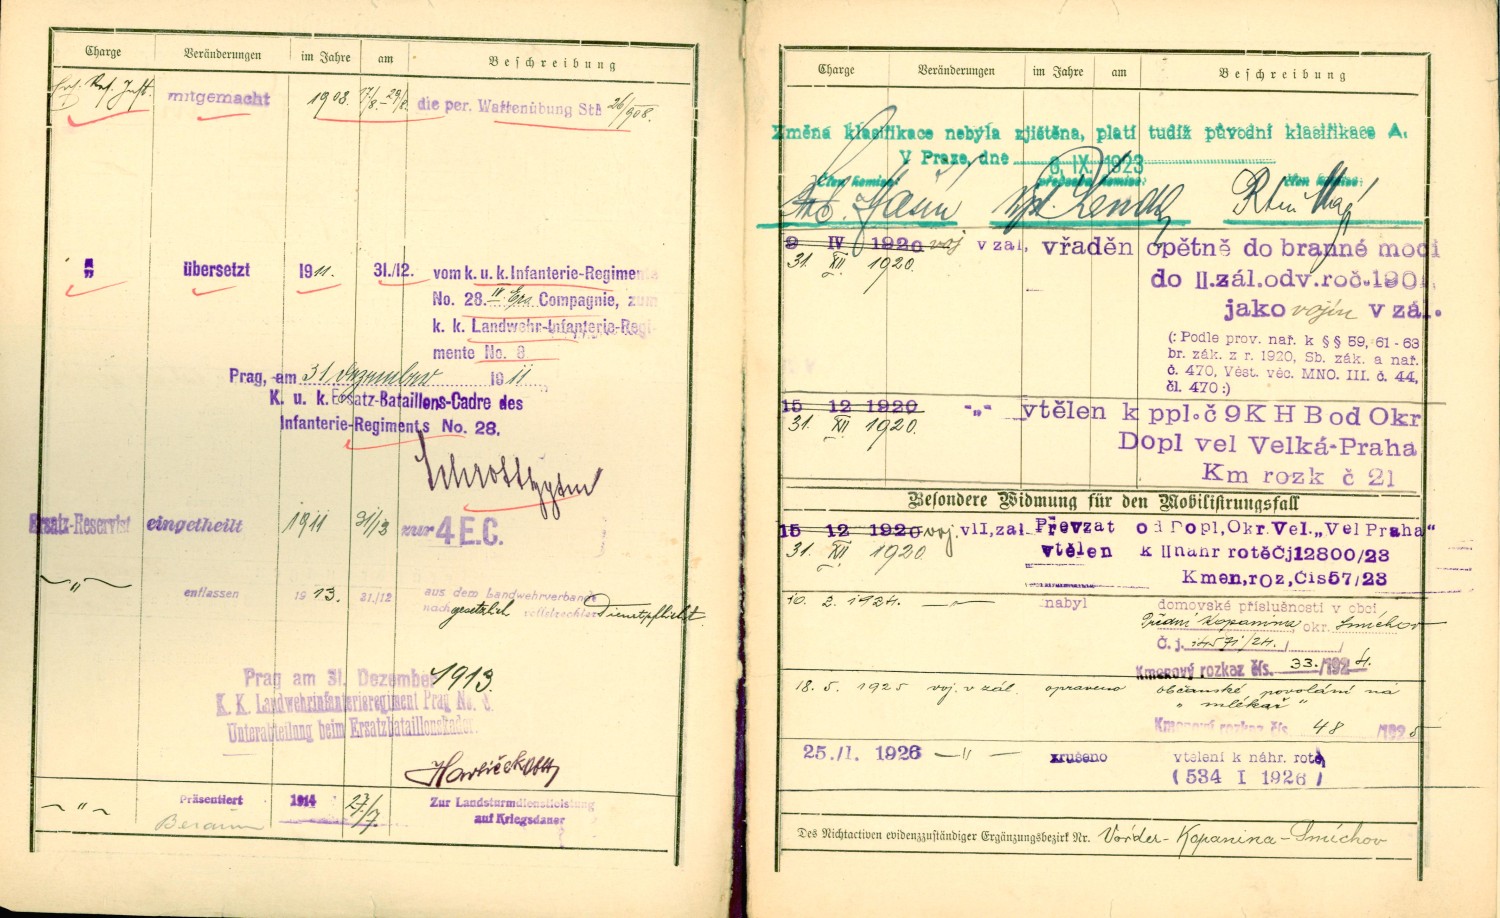 Charge Veränderungen im Jahre am Beschreibung
mitgemacht 1908. 17/8.–29/8. die per. Waffenübung StB 26/908.
" übersetzt 1911. 31./12. vom k. u. k. Infanterie-Regimente
No. 28. IV Ers Compagnie, zum
k. k. Landwehr-Infanterie-Regi-
mente No. 8.
Prag, am 31 Dezember 1911.
K. u. k. Ersatz-Bataillons-Cadre des
Infanterie-Regiments No. 28.
Ersatz-Reservist eingetheilt 1911 31/13 zur 4 E.C.
" entlassen 1913. 31./12 aus dem Landwehrverbande
nach gesetzlich vollstreckter Dienstpflicht.
Prag am 31. Dezember 1913.
K. K. Landwehrinfanterieregiment Prag No. 8.
Unterabteilung beim Ersatzbataillonskader.
Havlíček Oblt
" Präsentiert 1914 27/7. Zur Landsturmdienstleistung
Beraun auf Kriegsdauer
Charge Veränderungen im Jahre am Beschreibung
Změna klasifikace nebyla zjištěna, platí tudíž původní klasifikace A.
V Praze, dne 6. IX. 1923
Člen komise: předseda komise: člen komise:
9 IV 1920 voj v zál, vřaděn opětně do branné moci
31. XII 1920. do II.zál.odv.roč.1901,
jako vojín v zál.
(: Podle prov. nař. k §§ 59, 61-63
br. zák. z r. 1920, Sb. zák. a nař.
č. 470, Věst. věc. MNO. III. č. 44,
čl. 470 :)
15 12 1920 -"- vtělen k ppl.č 9 K H B od Okr
31. XII 1920. Dopl vel Velká-Praha
Km rozk č 21
Besondere Widmung für den Mobilisirungsfall
15 12 1920 voj. v II, zál. Převzat od Dopl, Okr. Vel. „Vel Praha"
31. XII 1920 vtělen k II náhr rotě Čj 12800/23
Kmen, roz, Čís 57/23
10. 2. 1924. nabyl domovské příslušnosti v obci
Přední Kopanina, okr. Smíchov
Č. j. 14571/24.
Kmenový rozkaz čís. 33./1924.
18. 5. 1925 voj. v zál. opraveno občanské povolání na
" mlékař "
Kmenový rozkaz čís. 48 /1925
25./I. 1926 — " — zrušeno vtělení k náhr. rotě
(534 I 1926)
Des Nichtactiven evidenzzuständiger Ergänzungsbezirk Nr. Vorder-Kopanina-Smíchov